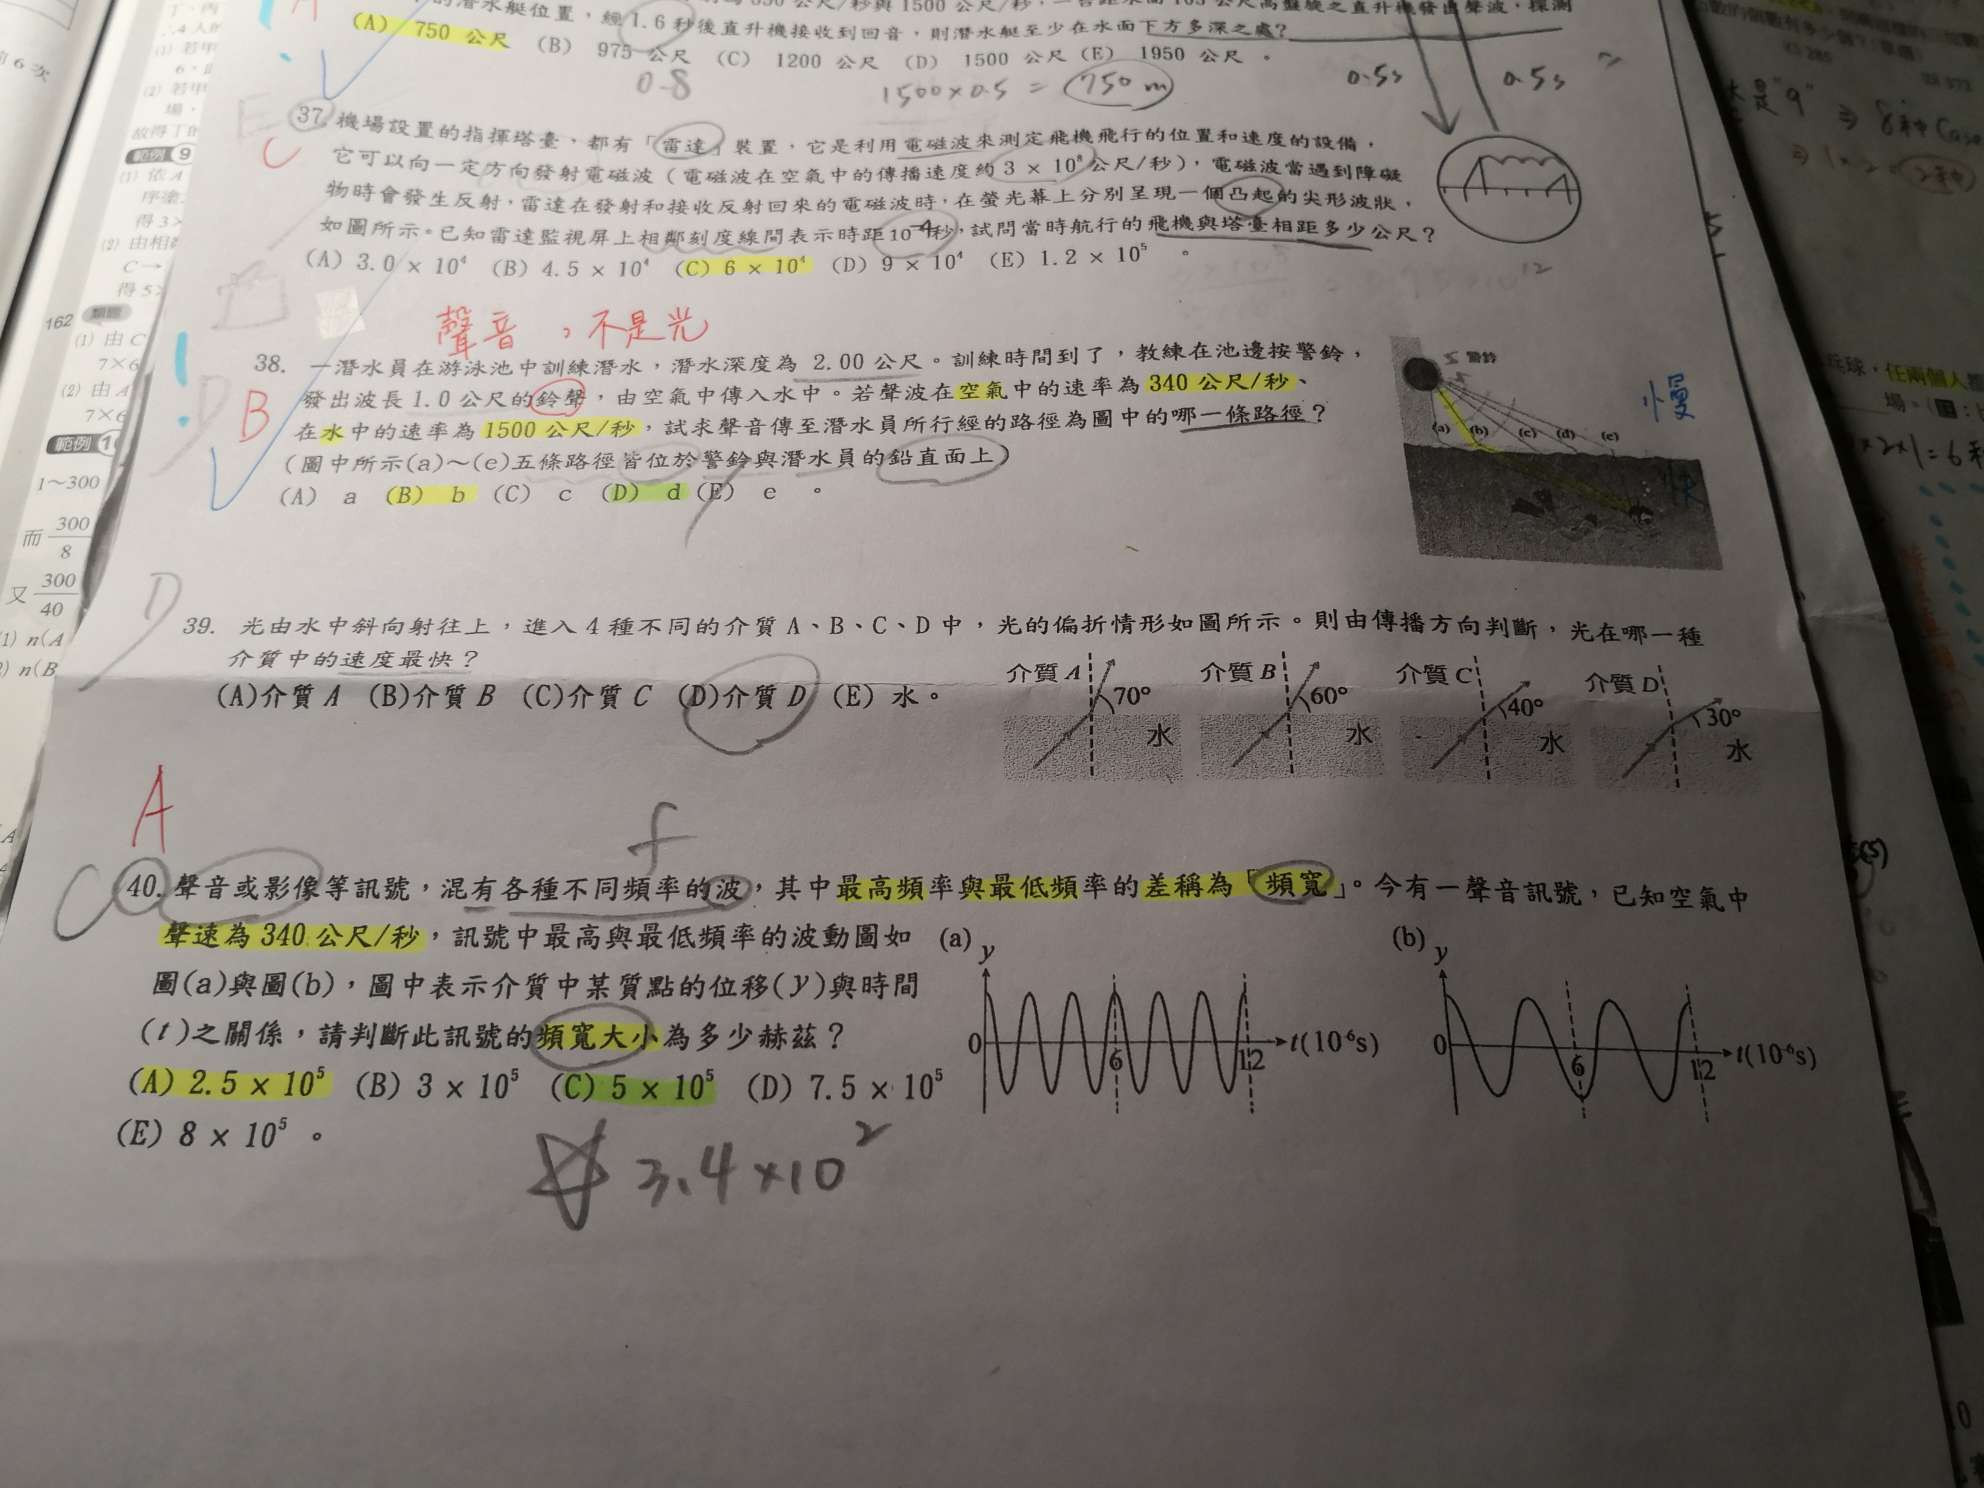 的潛水艇位置，經1.6秒後直升機接收到回音，則潛水艇至少在水面下方多深之處？
(A) 750 公尺 (B) 975 公尺 (C) 1200 公尺 (D) 1500 公尺 (E) 1950 公尺 。
0.8
1500×0.5 = 750 m
0.5s
0.5s
37. 機場設置的指揮塔臺，都有「雷達」裝置，它是利用電磁波來測定飛機飛行的位置和速度的設備，
C
它可以向一定方向發射電磁波（電磁波在空氣中的傳播速度約 3 × 10⁸ 公尺/秒），電磁波當遇到障礙
物時會發生反射，雷達在發射和接收反射回來的電磁波時，在螢光幕上分別呈現一個凸起的尖形波狀，
如圖所示。已知雷達監視屏上相鄰刻度線間表示時距10⁻⁴秒，試問當時航行的飛機與塔臺相距多少公尺？
(A) 3.0 × 10⁴ (B) 4.5 × 10⁴ (C) 6 × 10⁴ (D) 9 × 10⁴ (E) 1.2 × 10⁵ 。
聲音，不是光
38. 一潛水員在游泳池中訓練潛水，潛水深度為 2.00 公尺。訓練時間到了，教練在池邊按警鈴，
B
發出波長 1.0 公尺的鈴聲，由空氣中傳入水中。若聲波在空氣中的速率為 340 公尺/秒、
在水中的速率為 1500 公尺/秒，試求聲音傳至潛水員所行經的路徑為圖中的哪一條路徑？
（圖中所示(a)～(e)五條路徑皆位於警鈴與潛水員的鉛直面上）
(A) a (B) b (C) c (D) d (E) e 。
警鈴
(a) (b) (c) (d) (e)
慢
快
D
39. 光由水中斜向射往上，進入 4 種不同的介質 A、B、C、D 中，光的偏折情形如圖所示。則由傳播方向判斷，光在哪一種
介質中的速度最快？
(A)介質 A (B)介質 B (C)介質 C (D)介質 D (E) 水。
介質 A 70° 水
介質 B 60° 水
介質 C 40° 水
介質 D 30° 水
A
f
C
40. 聲音或影像等訊號，混有各種不同頻率的波，其中最高頻率與最低頻率的差稱為「頻寬」。今有一聲音訊號，已知空氣中
聲速為 340 公尺/秒，訊號中最高與最低頻率的波動圖如
圖(a)與圖(b)，圖中表示介質中某質點的位移(y)與時間
(t)之關係，請判斷此訊號的頻寬大小為多少赫茲？
(A) 2.5 × 10⁵ (B) 3 × 10⁵ (C) 5 × 10⁵ (D) 7.5 × 10⁵
(E) 8 × 10⁵ 。
(a) y
0 6 12 t(10⁻⁶s)
(b) y
0 6 12 t(10⁻⁶s)
3.4×10²
162
(1) 由 C
7×6
(2) 由 A
7×6
範例
1～300
而 300/8
又 300/40
(1) n(A
n(B
範例 9
(1) 依 A
得 3>
(2) 由相
C→
得 5>